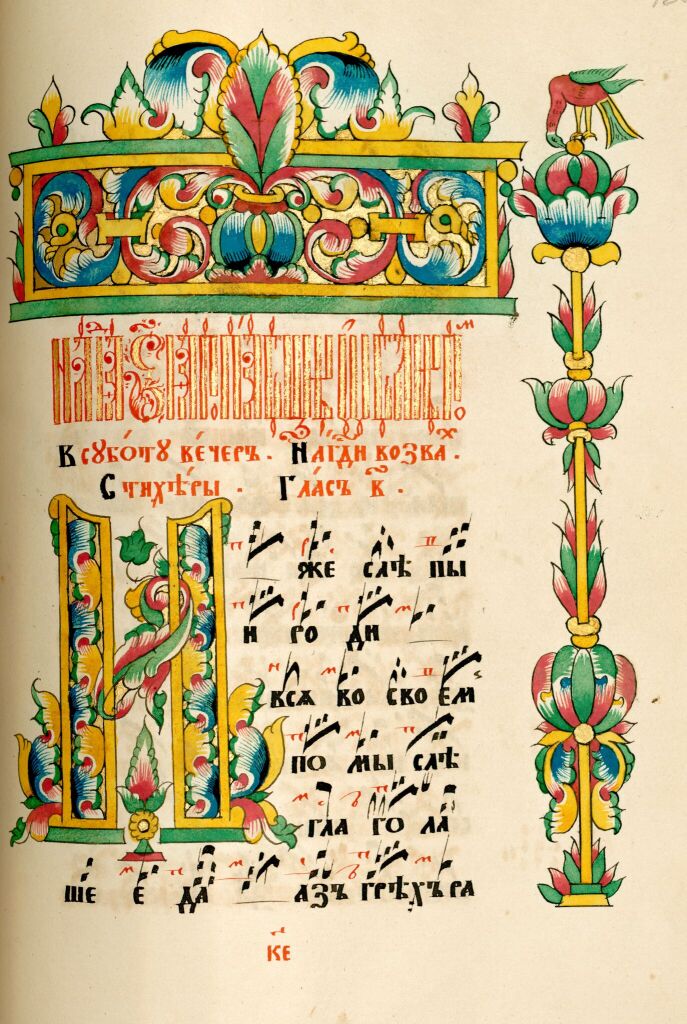 В сꙋбо́тꙋ ве́черъ . На гд҇и возваⷯ .
Стихѣ́ры . Гла́съ в҃ .
И же слѣ пы
и ро ди
всѧ во своем
по мы слѣ
гла го ла
ше е да азъ грѣхъ ра
ке